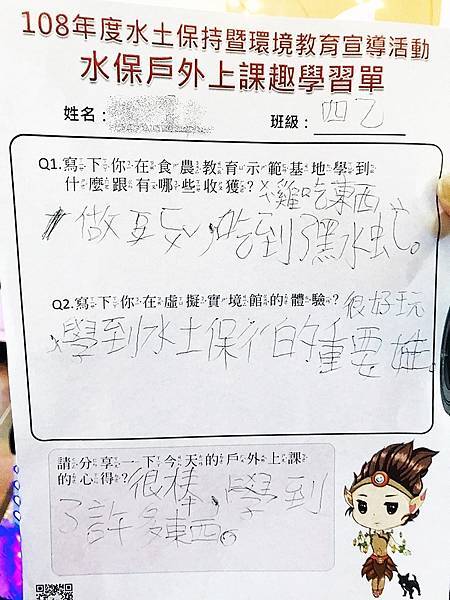 108年度水土保持暨環境教育宣導活動
水保戶外上課趣學習單
姓名：
班級：四乙
Q1.寫下你在食農教育示範基地學到
什麼跟有哪些收獲？雞吃東西，
做
Q2.寫下你在虛擬實境館的體驗？很好玩
，學到水土保ㄔˊ的重要姓。
請分享一下今天的戶外上課
的心得？很棒，學到
了許多東西。